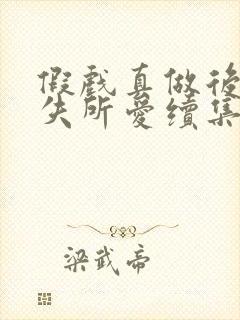 假戲真做後
失所愛續集
梁武帝